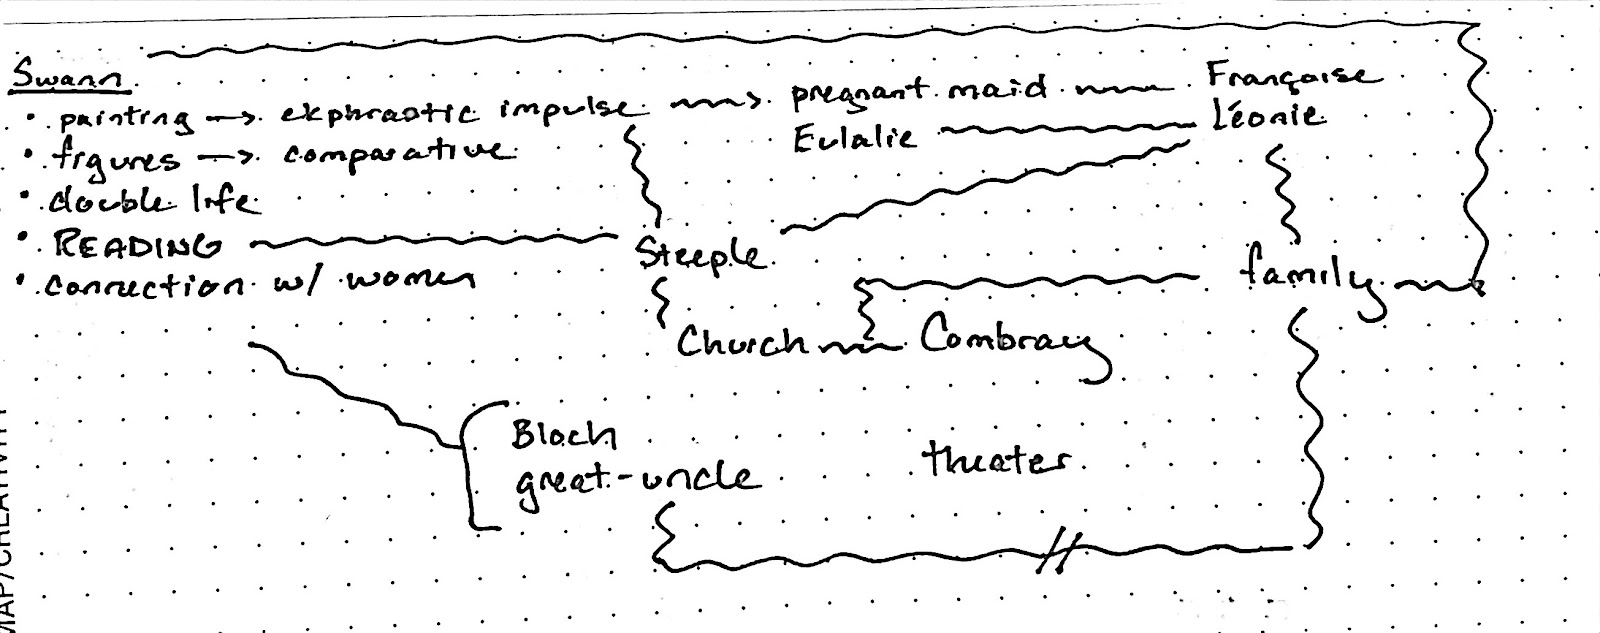 Swann
• painting → ekphrastic impulse → pregnant maid Françoise
Eulalie Léonie
• figures → comparative
• double life
• READING Steeple
• connection w/ women family
Church Combray
Bloch
great-uncle theater
MAP/CREATIVITY